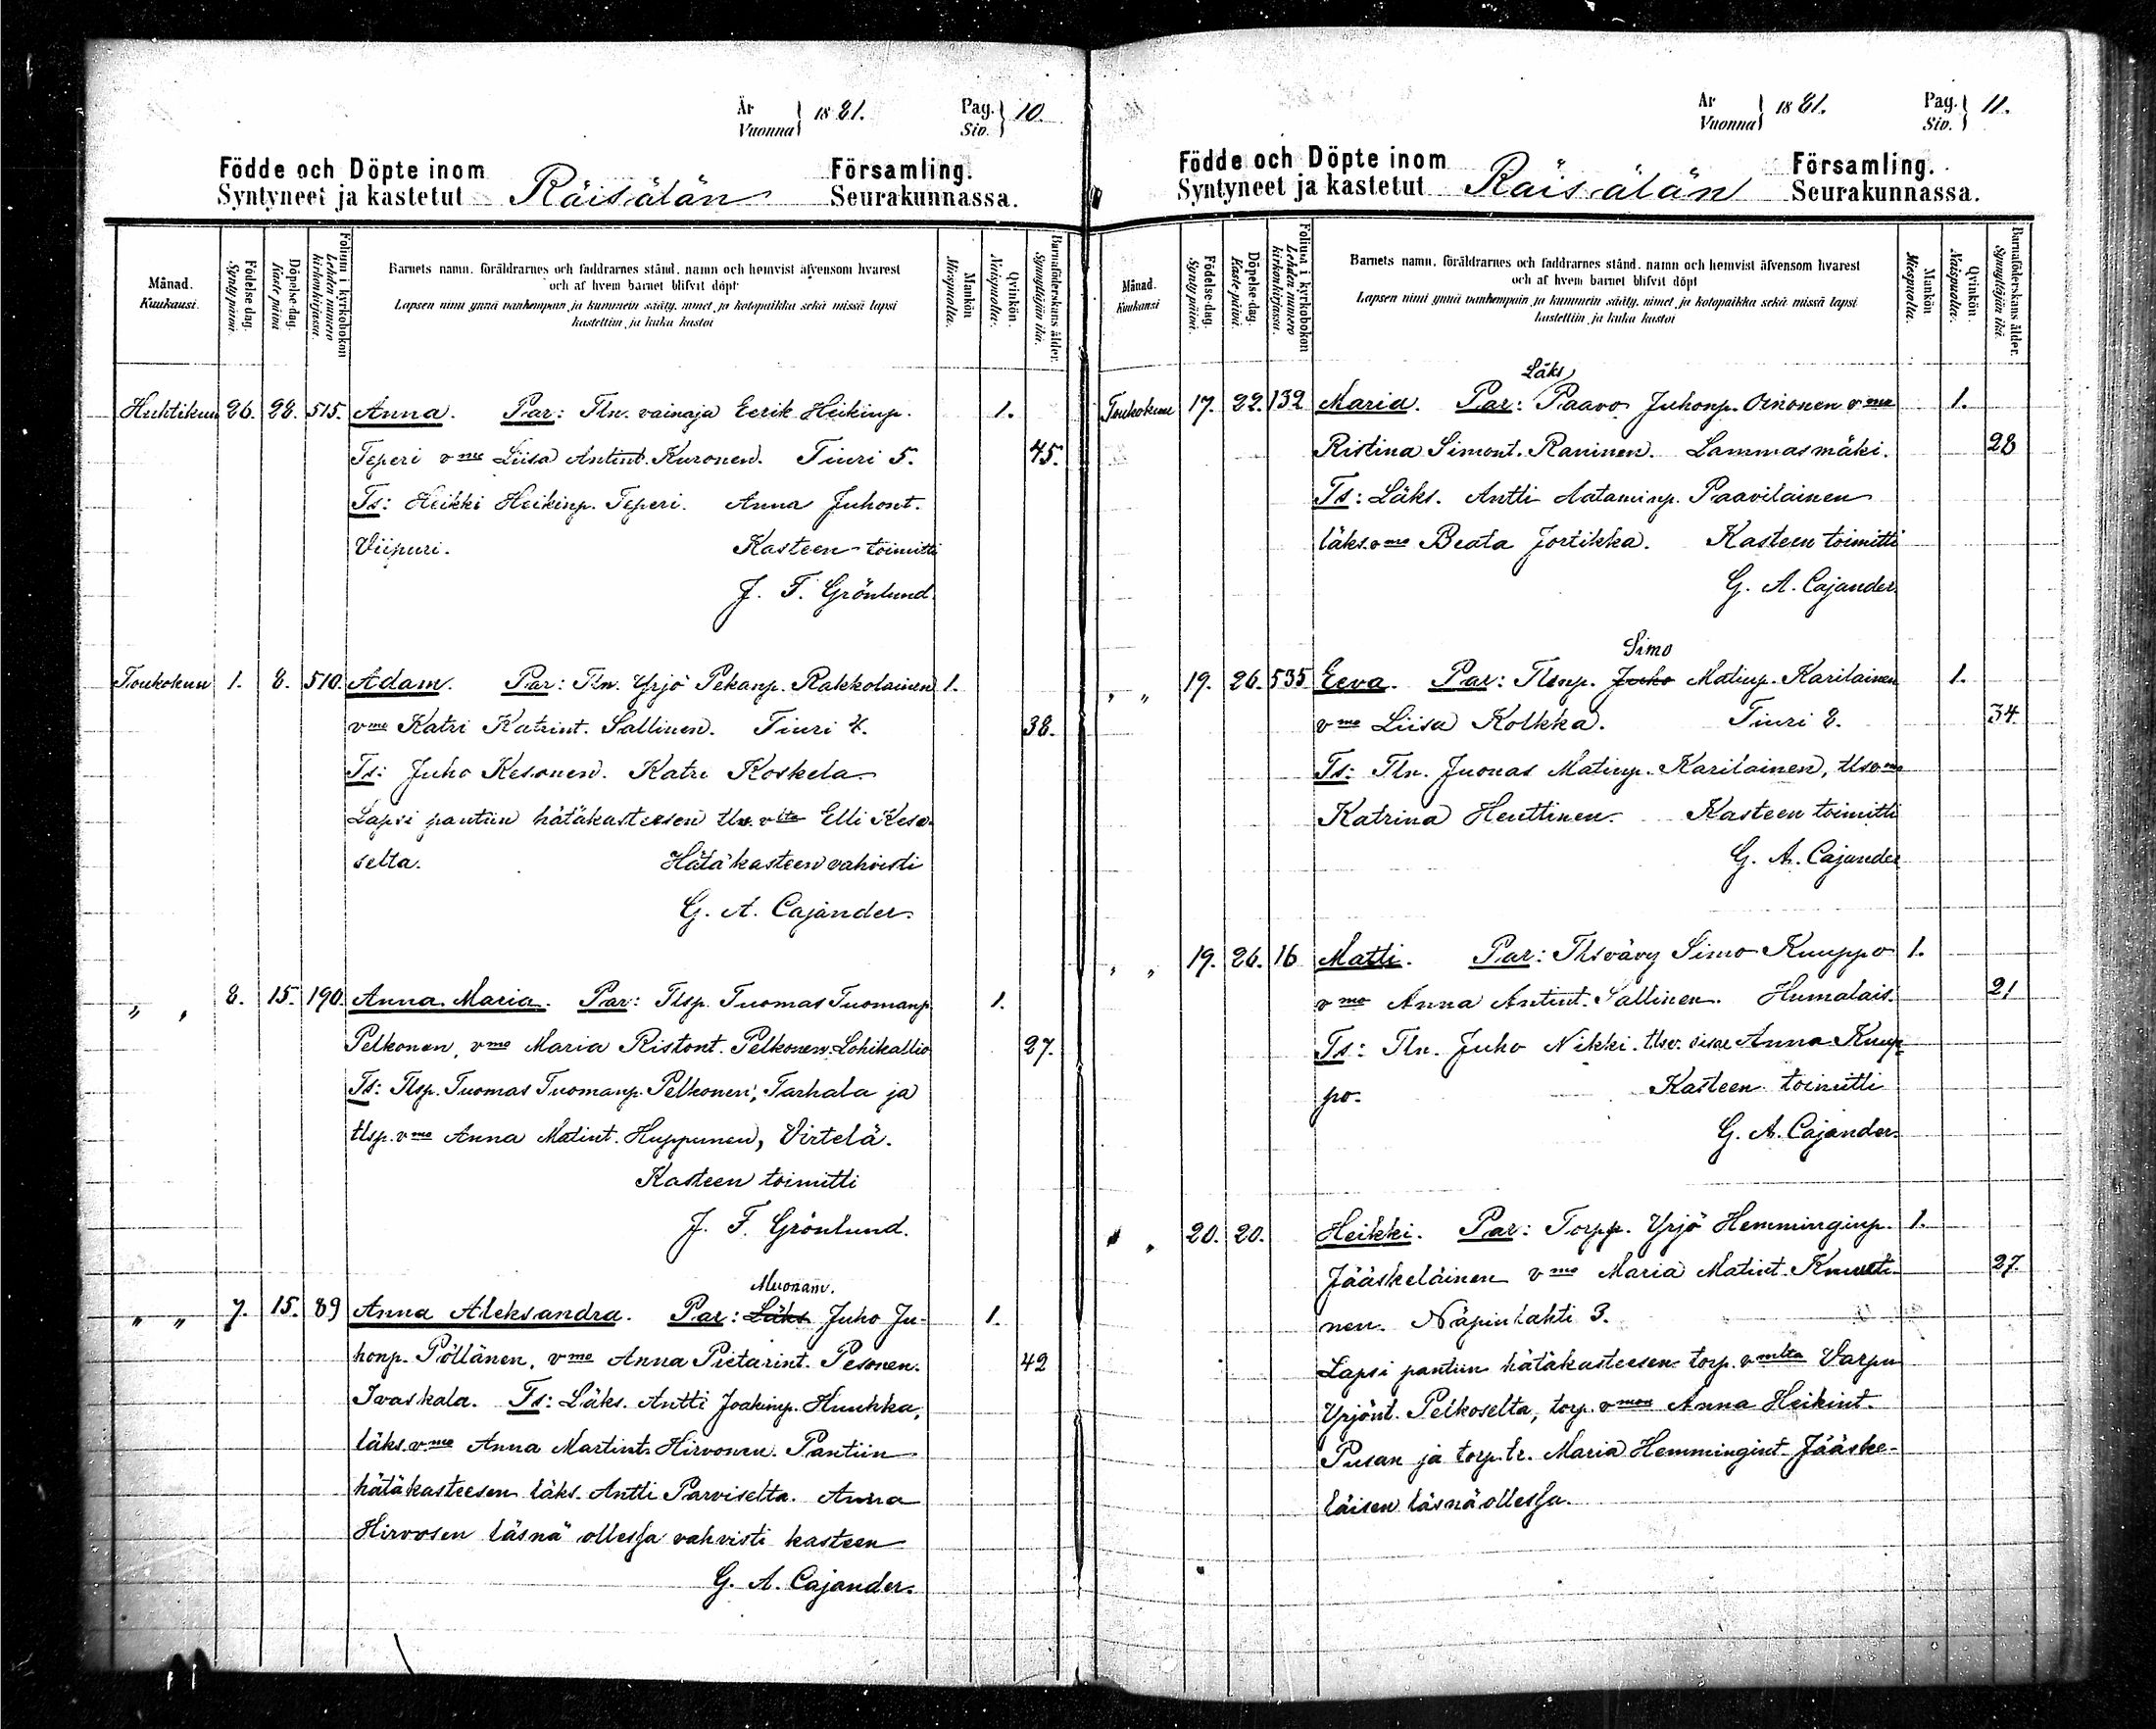 År
Vuonna } 1881.
Pag.
Siv. } 10.
Födde och Döpte inom
Syntyneet ja kastetut Räisälän Församling.
Seurakunnassa.
Månad.
Kuukausi.
Födelse-dag.
Synty päivä.
Döpelse-dag.
Kaste päivä
Folium i kyrkoboken
Lehden numero
kirkonkirjassa.
Barnets namn, föräldrarnes och faddrarnes stånd, namn och hemvist äfvensom hvarest
och af hvem barnet blifvit döpt
Lapsen nimi ynnä vanhempain ja kummein sääty, nimet ja kotopaikka sekä missä lapsi
kastettiin ja kuka kastoi
Mankön
Miespuolia.
Qvinkön.
Naispuolia.
Barnaföderskans ålder.
Synnyttäjän ikä.
Huhtikuu 26. 28. 515. Anna. Par: Tln. vainaja Eerik Heikinp. 1.
Teperi vmo Liisa Antint. Kuronen. Tiuri 5. 45.
Ts: Heikki Heikinp. Teperi. Anna Juhont.
Viipuri. Kasteen toimitti
J. F. Grönlund.
Toukokuu 1. 8. 510. Adam. Par: Tln. Yrjö Pekanp. Rakkolainen 1.
vmo Katri Katrint. Sallinen. Tiuri 4. 38.
Ts: Juho Kesonen. Katri Koskela
Lapsi pantiin hätäkasteesen Elli Keso-
selta. Hätäkasteen vahvisti
G. A. Cajander.
" " 8. 15. 190. Anna Maria. Par: Tlsp. Tuomas Tuomanp. 1.
Pelkonen, vmo Maria Ristont. Pelkonen. Lohikallio 27.
Ts: Tlsp. Tuomas Tuomanp. Pelkonen, Tarhala ja
tlsp. vmo Anna Matint. Huppunen, Virtelä.
Kasteen toimitti
J. F. Grönlund.
Muonam.
" " 7. 15. 89 Anna Aleksandra. Par: Läks. Juho Ju- 1.
honp. Pöllänen, vmo Anna Pietarint. Pesonen. 42
Ivaskala. Ts: Läks. Antti Joakimp. Huuhka,
läks. vmo Anna Martint. Hirvonen. Pantiin
hätäkasteesen läks. Antti Parviselta. Anna
Hirvosen läsnä ollessa vahvisti kasteen
G. A. Cajander.
År
Vuonna } 1881.
Pag.
Siv. } 11.
Födde och Döpte inom
Syntyneet ja kastetut Räisälän Församling.
Seurakunnassa.
Månad.
Kuukausi
Födelse-dag.
Synty päivä.
Döpelse-dag.
Kaste päivä.
Folium i kyrkoboken
Lehden numero
kirkonkirjassa.
Barnets namn, föräldrarnes och faddrarnes stånd, namn och hemvist äfvensom hvarest
och af hvem barnet blifvit döpt
Lapsen nimi ynnä vanhempain ja kummein sääty, nimet ja kotopaikka sekä missä lapsi
kastettiin ja kuka kastoi
Mankön
Miespuolia.
Qvinkön.
Naispuolia.
Barnaföderskans ålder.
Synnyttäjän ikä.
Läks.
Toukokuu 17. 22. 132 Maria. Par: Paavo Juhonp. Oinonen vmo 1.
Ristina Simont. Raninen. Lammasmäki. 28
Ts: Läks. Antti Aataminp. Paavilainen
läks. vmo Beata Jortikka. Kasteen toimitti
G. A. Cajander.
Simo
" " 19. 26. 535 Eeva. Par: Tlsnp. Juho Matinp. Karilainen 1.
vmo Liisa Kolkka. Tiuri 8. 34.
Ts: Tln. Juonas Matinp. Karilainen, tls. vmo
Katrina Henttinen. Kasteen toimitti
G. A. Cajander
" " 19. 26. 16 Matti. Par: Tlsvävy Simo Kuuppo 1.
vmo Anna Antint. Sallinen. Humalais. 21
Ts: Tln. Juho Nikki. tlsv. sisar Anna Kuup-
po. Kasteen toimitti
G. A. Cajander.
" " 20. 20. Heikki. Par: Torpp. Yrjö Hemminginp. 1.
Jääskeläinen vmo Maria Matint. Knuuti- 27.
nen. Näpinlahti 3.
Lapsi pantiin hätäkasteesen torp. vmlta Varpu
Yrjönt. Pelkoselta, torp. vmon Anna Heikint.
Pusan ja torp. tr. Maria Hemmingint. Jääske-
läisen läsnäollessa.